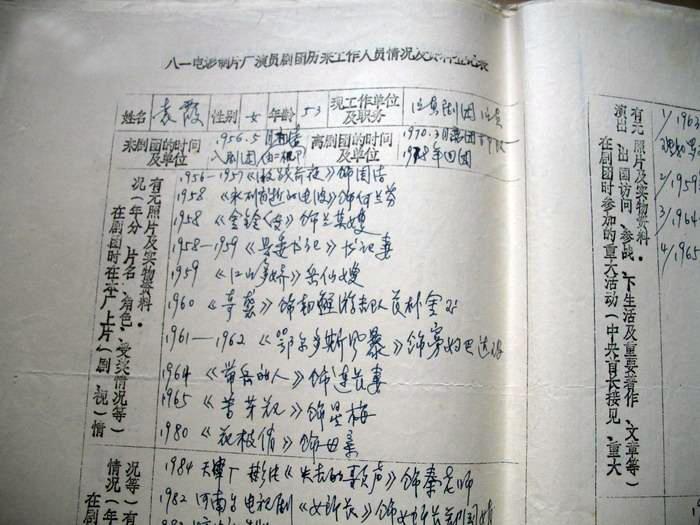 八一电影制片厂演员剧团历来工作人员情况及资料登记表
姓名 袁霞 性别 女 年龄 53 现工作单位及职务 演员剧团 演员
来剧团的时间及单位 1956.5月 入剧团 离剧团的时间及单位 1970.3月
1978年回团
在剧团时在本厂上片(剧、视)情
况(年份、片名、角色、受奖情况等)
有无照片及实物资料.
1956—1957《激战前夜》饰
1958《永不消逝的电波》饰何兰芬
1958《金铃传》饰兰英嫂
1958—1959《县委书记》书记妻
1959《江山多娇》岳仙嫂
1960《奇袭》饰朝鲜游击队员朴金
1961—1962《鄂尔多斯风暴》饰寡妇巴
1964《带兵的人》饰连长妻
1965《苦菜花》饰星梅
1980《花枝俏》饰母亲
1984 天津厂 《失去的歌声》饰秦老师
1982 河南台电视剧《女所长》饰女所长
况等)
情况(年
在剧
有
在剧团时参加的重大活动(中央首长接见、重大
演出、出国访问、参战、下生活及重要著作、文章等)
有无照片及实物资料.
1/1963
2/1959
3/1964
4/1965